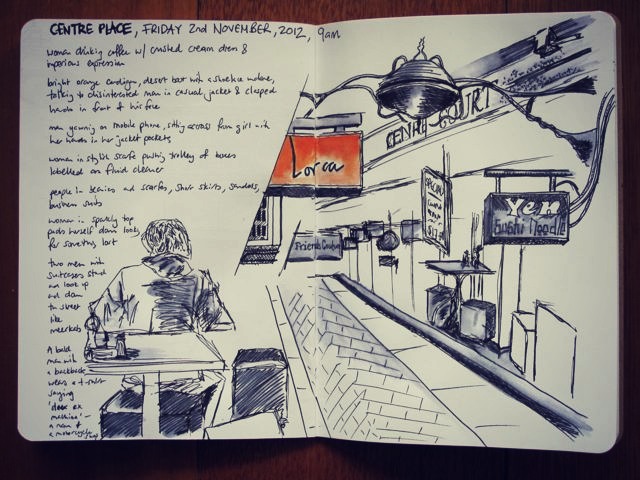 CENTRE PLACE, FRIDAY 2nd NOVEMBER, 2012, 9am
woman drinking coffee w/ crushed cream dress &
imperious expression
bright orange cardigan, desert boot with a shoelace undone,
talking to disinterested man in casual jacket & clasped
hands in front of his face
man yawning on mobile phone, sitting across from girl with
her hands in her jacket pockets
woman in stylish scarf pushing trolley of boxes
labelled on fluid cleaner
people in beanies and scarfs, short skirts, sandals,
business suits
woman in sparkly top
pads herself down looks
for something lost
two men with
suitcases stand
and look up
and down
the street
like
meerkats
A bald
man with
a backpack
wears a t-shirt
saying
'deux ex
machina' –
a name of
a motorcycle shop
CENTRE COURT
Lorca
Friends Couture
SPECIAL
Yen
Sushi Noodle